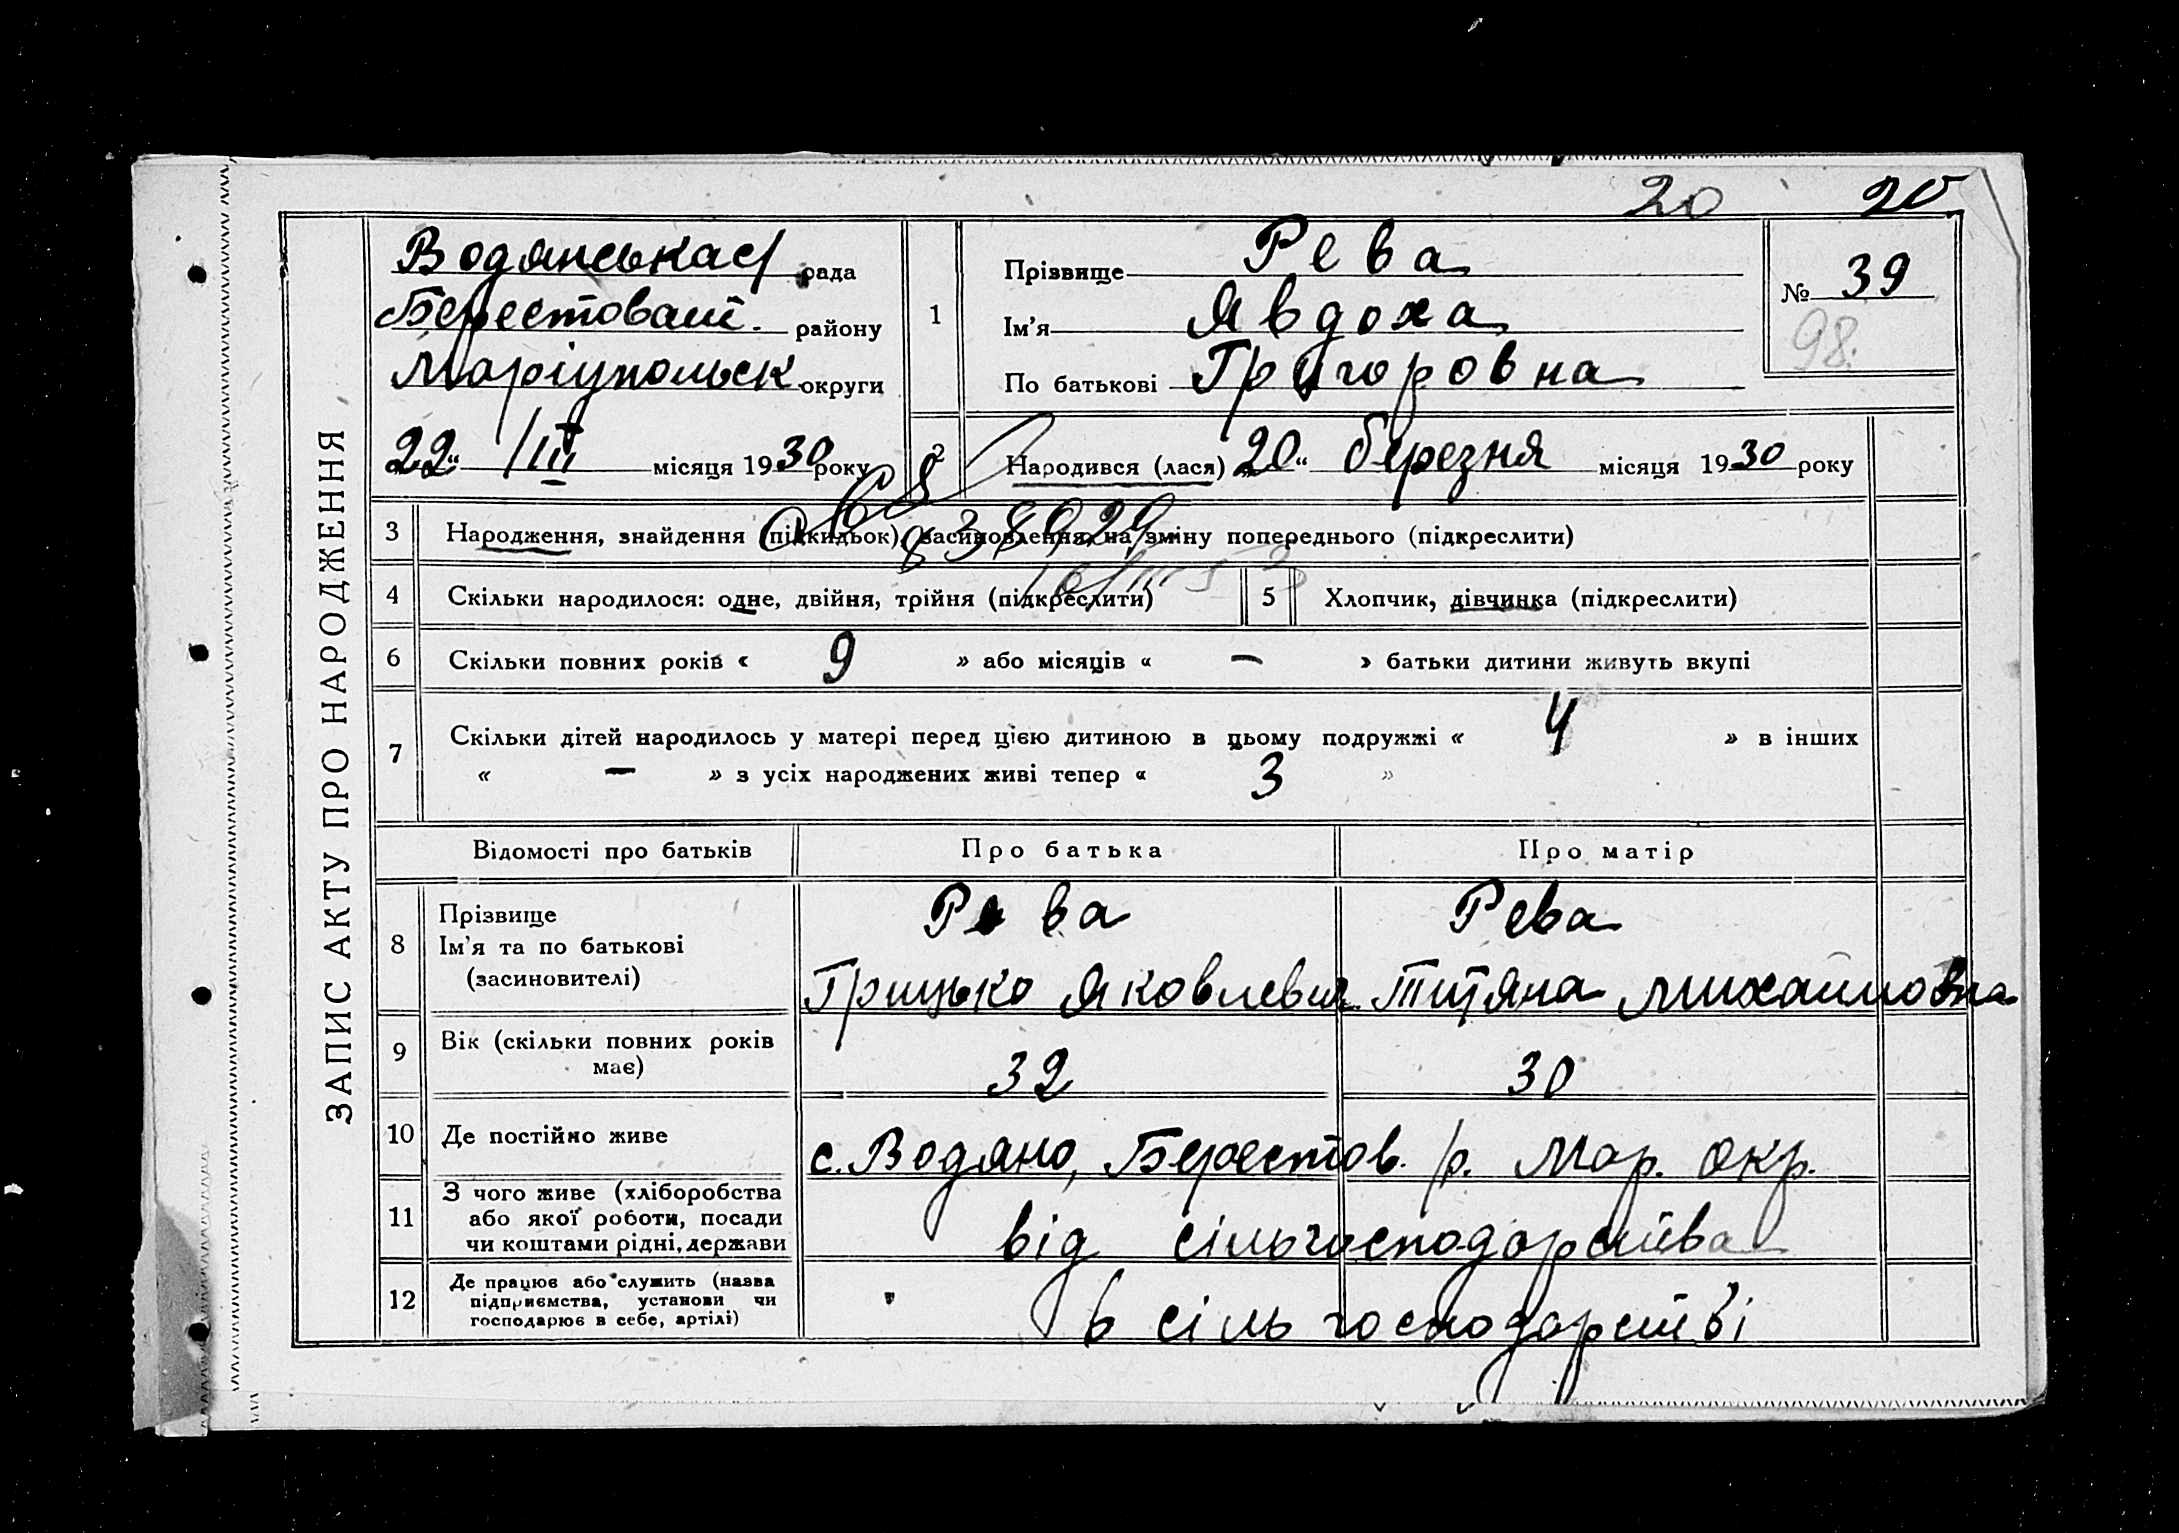 20 20
ЗАПИС АКТУ ПРО НАРОДЖЕННЯ
Водянська с/ рада
Берестоват. району
Маріупольск округи
22 “ /III місяця 1930 року
1
Прізвище Рева
Ім’я Явдоха
По батькові Григоровна
№ 39
98.
2 Народився (лася) 20 “ березня місяця 1930 року
3 Народження, знайдення (підкидьок), засиновлення, на зміну попереднього (підкреслити)
4 Скільки народилося: одне, двійня, трійня (підкреслити)
5 Хлопчик, дівчинка (підкреслити)
6 Скільки повних років « 9 » або місяців « — » батьки дитини живуть вкупі
7 Скільки дітей народилось у матері перед цією дитиною в цьому подружжі « 4 » в інших
« — » з усіх народжених живі тепер « 3 »
Відомості про батьків Про батька Про матір
8 Прізвище
Ім’я та по батькові
(засиновителі)
Рева
Грицько Яковлевич
Рева
Титяна Михайловна
9 Вік (скільки повних років
має)
32 30
10 Де постійно живе с. Водяно, Берестов. р. Мар. окр.
11 З чого живе (хліборобства
або якої роботи, посади
чи коштами рідні, держави
від сільгосподарства
12 Де працює або служить (назва
підприємства, установи чи
господарює в себе, артілі)
в сільгосподарстві